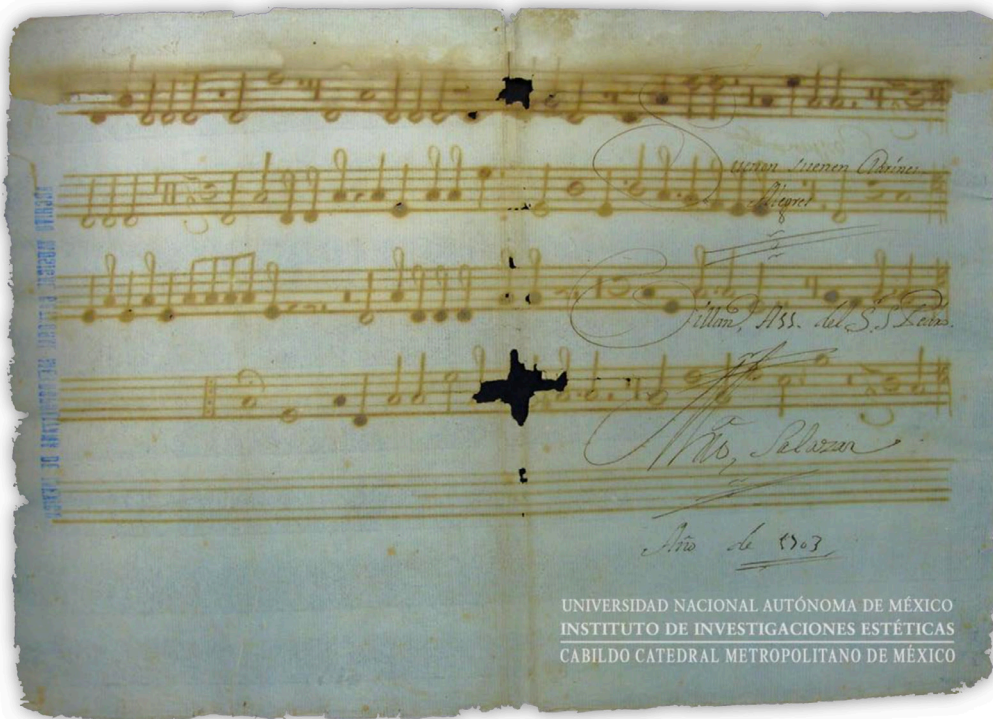 Suenen suenen Clarines
Alegres
Villan.º Ass. del S.S. Pedro.
Mro, Salazar
Año de 1703
UNIVERSIDAD NACIONAL AUTÓNOMA DE MÉXICO
INSTITUTO DE INVESTIGACIONES ESTÉTICAS
CABILDO CATEDRAL METROPOLITANO DE MÉXICO